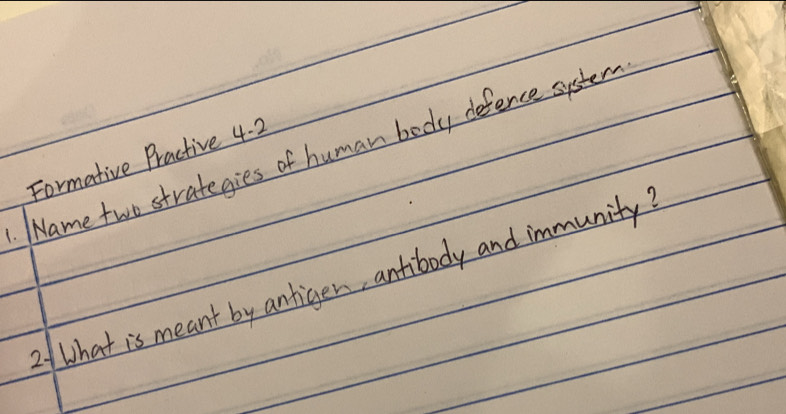 Formative Practive 4.2
1. Name two strategies of human body defence system.
2. What is meant by antigen, antibody and immunity?